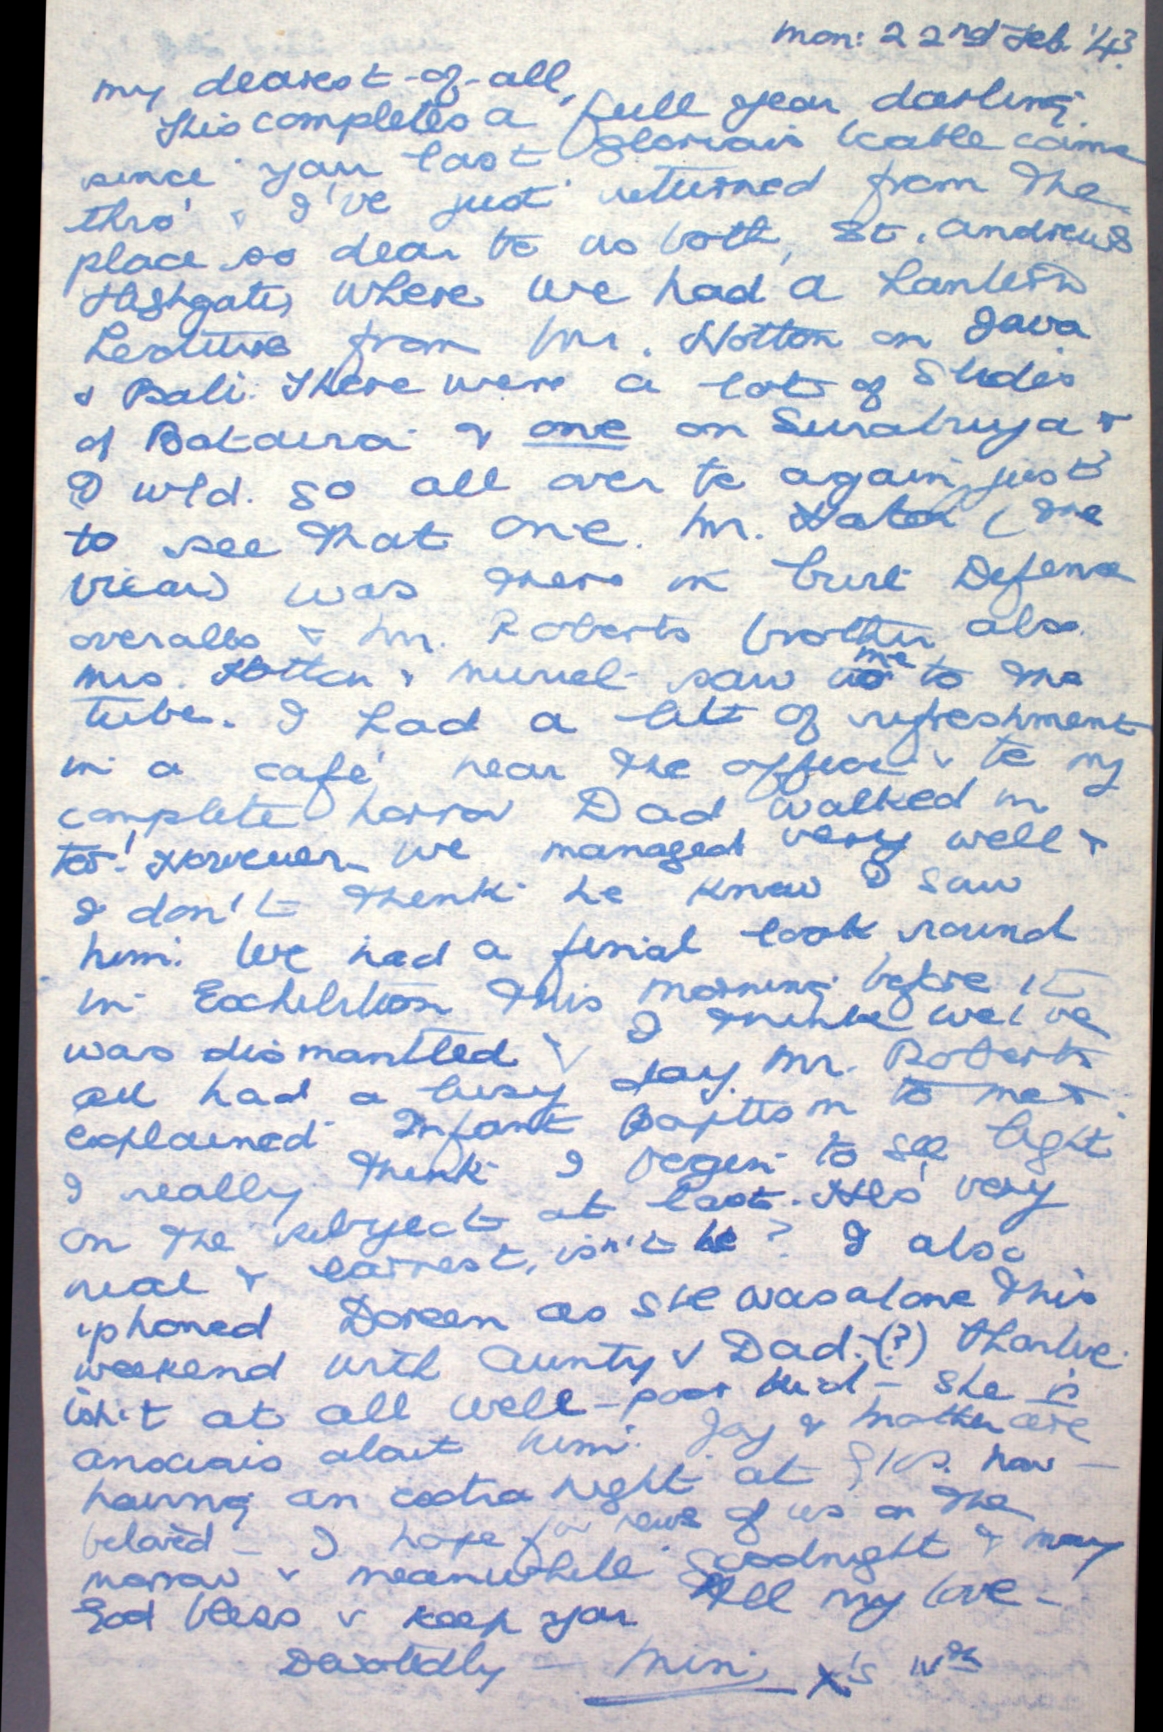 Mon: 22nd Feb '43.
My dearest-of-all,
This completes a full year darling
since your last glorious cable came
thro' & I've just returned from the
place so dear to us both, St. Andrews
Highgate, where we had a Lantern
Lecture from Mr. Hotton on Java
& Bali. There were a lot of slides
of Batavia & one on Surabuya &
I wld. go all over to again, just
to see that one. Mr. (the
Vicar) was there in Civil Defence
overalls & Mr. Roberts brother also.
Mrs. Hotton & Muriel saw me to the
tube. I had a bit of refreshment
in a café near the office & to my
complete horror Dad walked in
too! However we managed very well &
I don't think he knew I saw
him. We had a final look round
in Exhibition this morning before it
was dismantled & I think we've
all had a busy day. Mr. Roberts
explained Infant Baptism to me &
I really think I begin to see light
on the subject at last. He's very
real & earnest, isn't he? I also
'phoned Doreen as she was alone this
weekend with Aunty & Dad.-(?)
isn't at all well - poor kid - she is
anxious about him. Joy & Mother are
having an extra night at now -
beloved - I hope for news of us on the
morrow & meanwhile Goodnight & may
God bless & keep you All my love -
Devotedly - Mini, x's